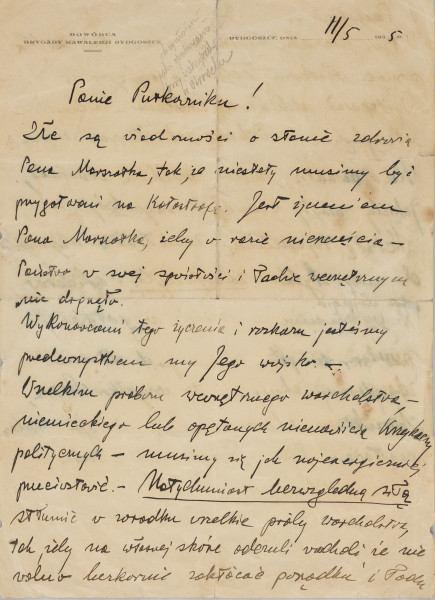 DOWÓDCA
BRYGADY KAWALERII BYDGOSZCZ
BYDGOSZCZ, DNIA 11/5 1935.
Panie Pułkowniku!
Złe są wiadomości o stanie zdrowia
Pana Marszałka, tak, że niestety musimy być
przygotowani na Katastrofę. Jest życzeniem
Pana Marszałka, żeby w razie nieszczęścia –
Państwo w swej spoistości i Ładzie wewnętrznym
nie drgnęło.
Wykonawcami tego życzenia i rozkazu jesteśmy
przedewszystkiem my Jego wojsko. –
Wszelkim próbom wewnętrznego warcholstwa –
niemieckiego lub opętanych nienawiścią
politycznych – musimy się jak najenergiczniej
przeciwstawić. – Natychmiast bezwzględną siłą
stłumić w zarodku wszelkie próby warcholstwa,
tak żeby na własnej skórze odczuli że nie
wolno bezkarnie zakłócać porządku i Ładu